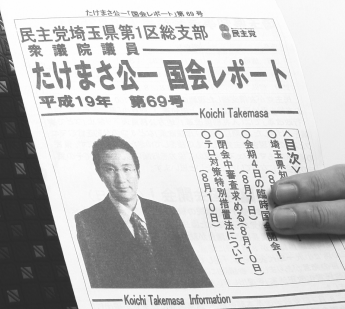 たけまさ公一「国会レポート」第69号
民主党埼玉県第1区総支部
民主党
衆議院議員
たけまさ公一 国会レポート
平成19年 第69号
Koichi Takemasa
＜目次＞
○埼玉県知
○会期4日の臨時国会開会！
(8月7日)
○閉会中審査求める(8月10日)
○テロ対策特別措置法について
(8月10日)
Koichi Takemasa Information